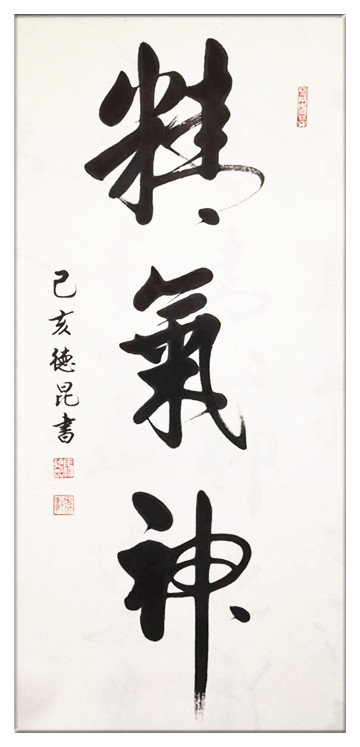 精氣神
己亥德昆書